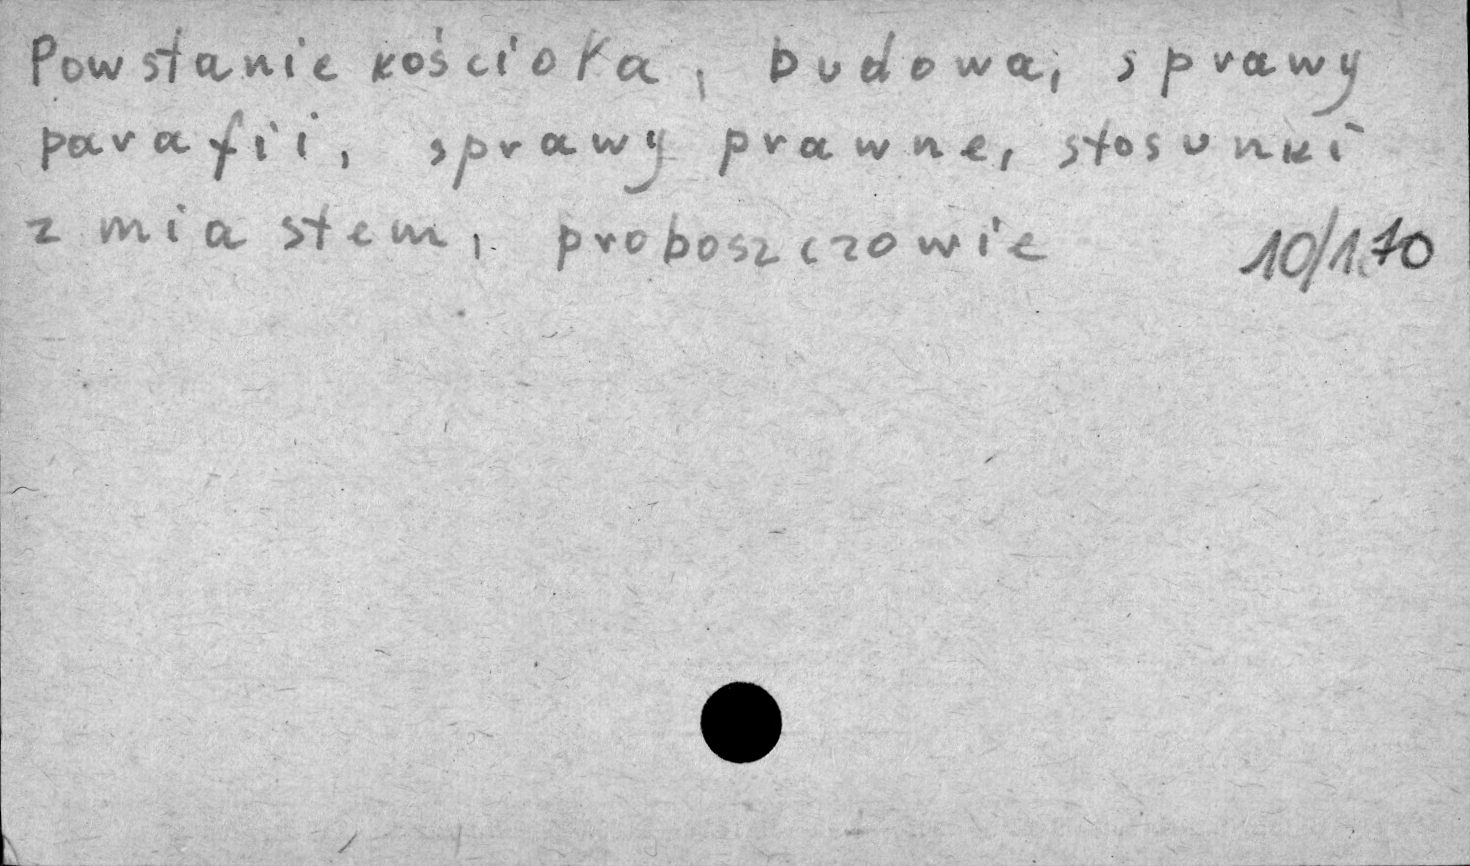 Powstanie kościoła, budowa, sprawy
parafii, sprawy prawne, stosunki
z miastem, proboszczowie 10/170